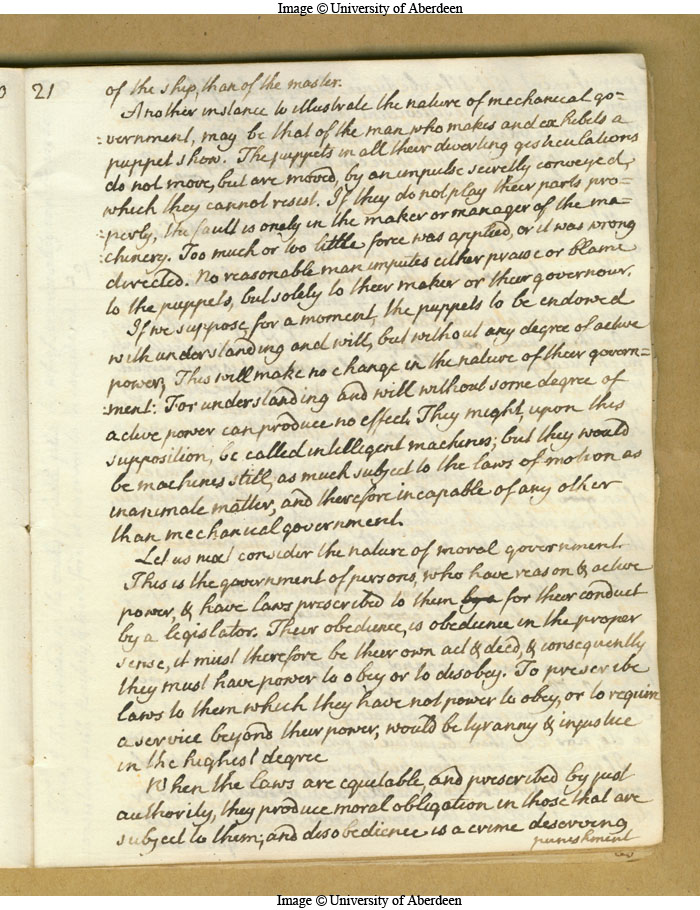 Image © University of Aberdeen
21
of the ship, than of the master.
Another instance to illustrate the nature of mechanical go=
:vernment, may be that of the man who makes and exhibits a
puppet show. The puppets in all their diverting gesticulations
do not move, but are moved, by an impulse secretly conveyed,
which they cannot resist. If they do not play their parts pro=
:perly, the fault is onely in the maker or manager of the ma=
:chinery. Too much or too little force was applied, or it was wrong
directed. No reasonable man imputes either praise or blame
to the puppets, but solely to their maker or their governour.
If we suppose, for a moment, the puppets to be endowed
with understanding and will, but without any degree of active
power; This will make no change in the nature of their govern=
:ment: For understanding and will without some degree of
active power can produce no effect. They might, upon this
supposition, be called intelligent machines; but they would
be machines still, as much subject to the laws of motion as
inanimate matter, and therefore incapable of any other
than mechanical government.
Let us next consider the nature of moral government.
This is the government of persons, who have reason & active
power, & have laws prescribed to them by a for their conduct
by a legislator. Their obedience, is obedience in the proper
sense, it must therefore be their own act & deed, & consequently
they must have power to obey or to disobey. To prescribe
laws to them which they have not power to obey, or to require
a service beyond their power, would be tyranny & injustice
in the highest degree
When the laws are equitable, and prescribed by just
authority, they produce moral obligation in those that are
subject to them; and disobedience is a crime deserving
punishment
Image © University of Aberdeen